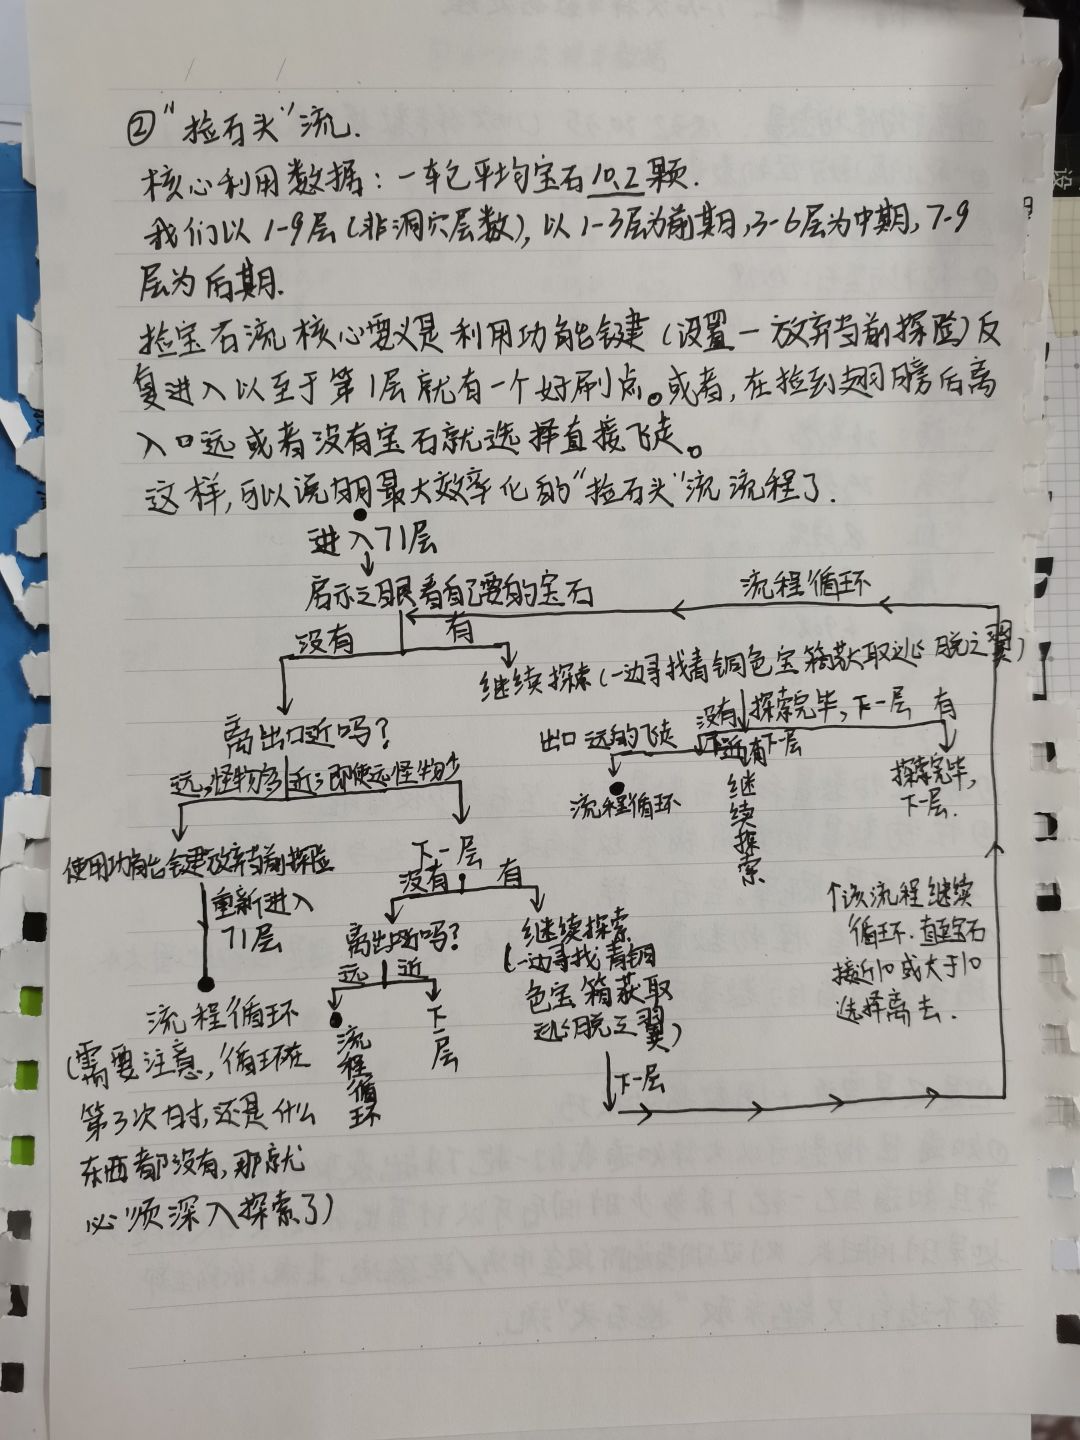 ②"捡石头"流.
核心利用数据:一车包平均宝石10.2颗.
我们以1-9层(非洞穴层数),以1-3层为前期,3-6层为中期,7-9
层为后期.
捡宝石流核心要义是利用功能键(设置一放弃当前探险)反
复进入以至于第1层就有一个好刷点。或者,在捡到翅膀后离
入口远或者没有宝石就选择直接飞走。
这样,可以说明最大效率化的"捡石头"流流程了.
进入71层
启示之眼看自己要的宝石
流程循环
没有
有
继续探索(一边寻找青铜色宝箱获取逃脱之翼)
离出口近吗?
没有
探索完毕,下一层
有
出口远的飞走
下一层
继续探索
流程循环
探索完毕,
下一层.
远,怪物多
近;即使远怪物少
使用功能键放弃当前探险
重新进入
71层
流程循环
(需要注意,循环在
第3次时,还是什么
东西都没有,那就
必须深入探索了)
下一层
没有
有
离出口近吗?
远
近
流程循环
下一层
继续探索
(一边寻找青铜
色宝箱获取
逃脱之翼)
下一层
↑该流程继续
循环.直至宝石
接近10或大于10
选择离去.